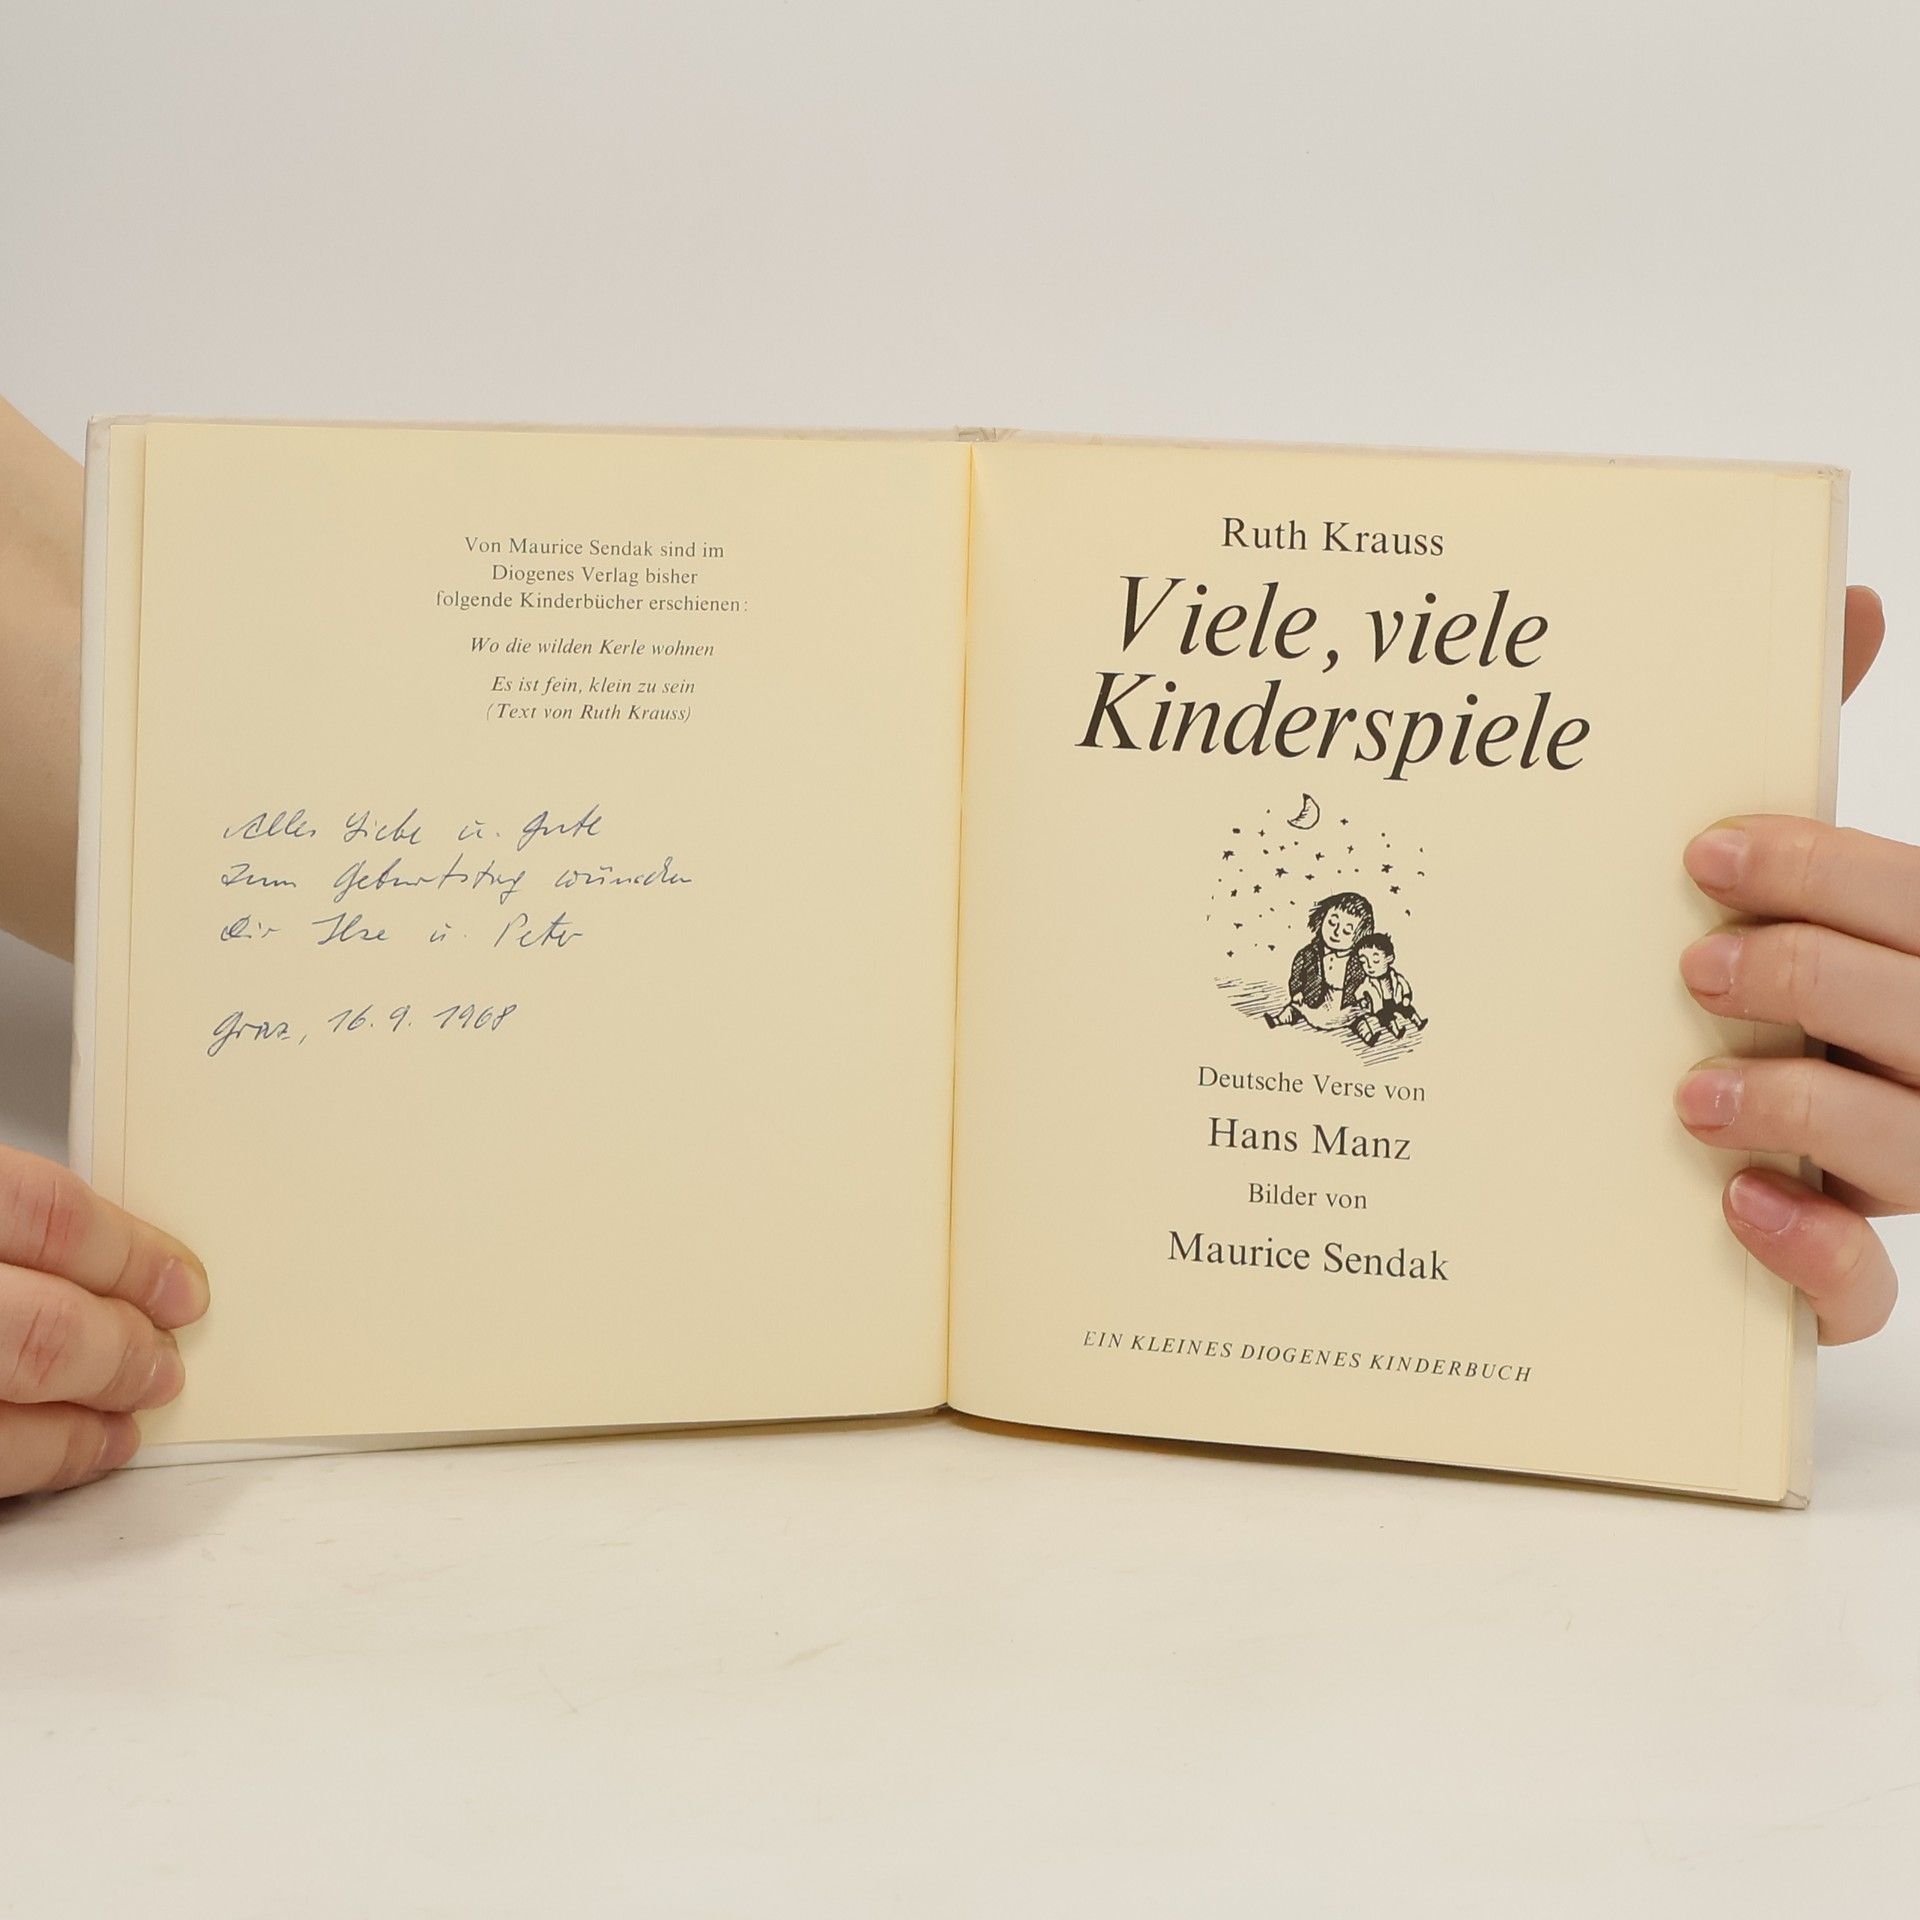 Von Maurice Sendak sind im
Diogenes Verlag bisher
folgende Kinderbücher erschienen:
Wo die wilden Kerle wohnen
Es ist fein, klein zu sein
(Text von Ruth Krauss)
Alles Liebe u. Gute
zum Geburtstag wünschen
Dir Ilse u. Peter
Graz, 16. 9. 1968
Ruth Krauss
Viele, viele
Kinderspiele
Deutsche Verse von
Hans Manz
Bilder von
Maurice Sendak
EIN KLEINES DIOGENES KINDERBUCH